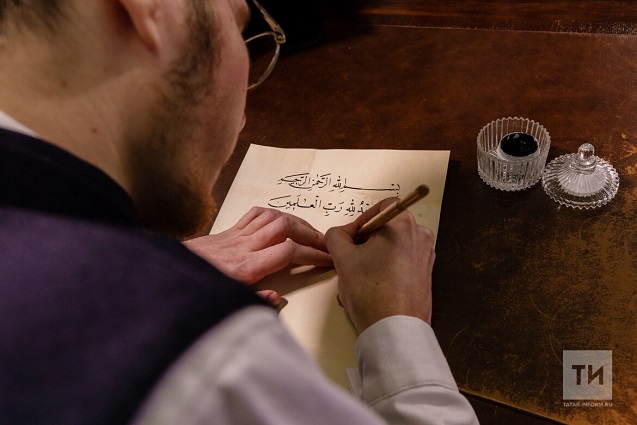 بِسْمِ اللهِ الرَّحْمٰنِ الرَّحِيمِ
لِلّٰهِ رَبِّ الْعٰلَمِينَ
ТИ
TATAR-INFORM.RU